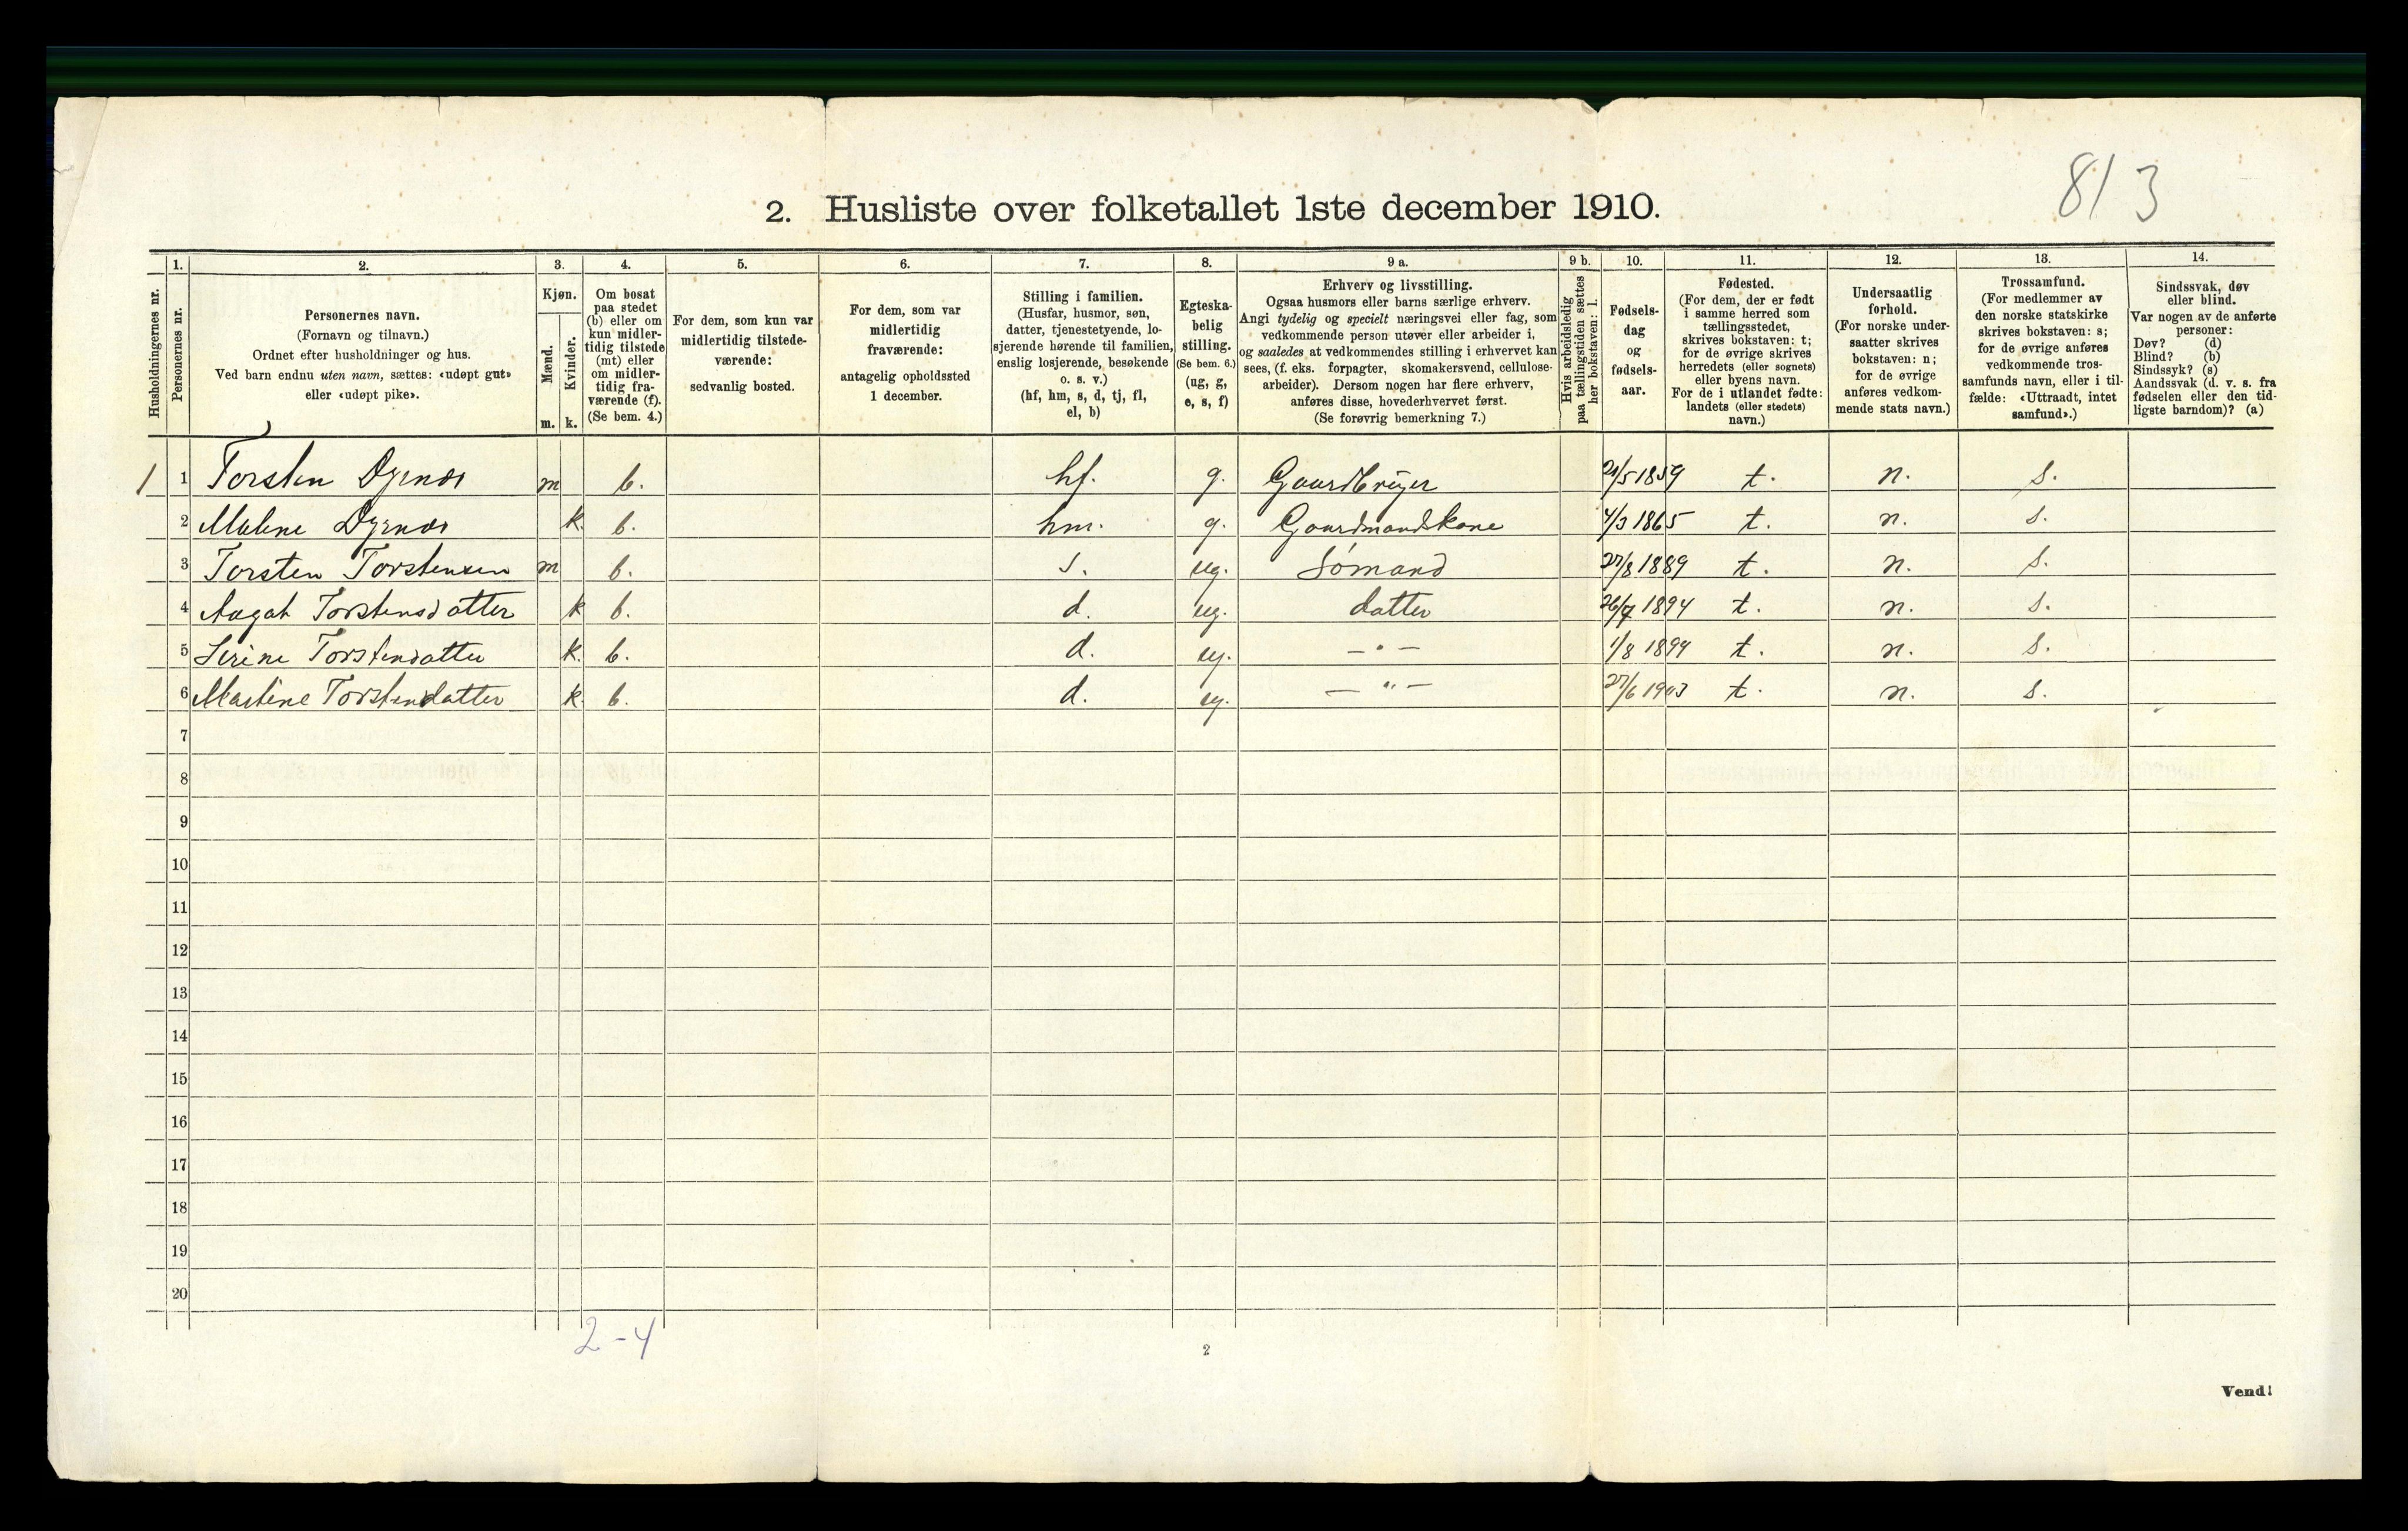 813
2. Husliste over folketallet 1ste december 1910.
Husholdningernes nr.
1.
Personernes nr.
2.
Personernes navn.
(Fornavn og tilnavn.)
Ordnet efter husholdninger og hus.
Ved barn endnu uten navn, sættes: «udøpt gut»
eller «udøpt pike».
3.
Kjøn.
Mænd.
Kvinder.
m. k.
4.
Om bosat
paa stedet
(b) eller om
kun midler-
tidig tilstede
(mt) eller
om midler-
tidig fra-
værende (f).
(Se bem. 4.)
5.
For dem, som kun var
midlertidig tilstede-
værende:
sedvanlig bosted.
6.
For dem, som var
midlertidig
fraværende:
antagelig opholdssted
1 december.
7.
Stilling i familien.
(Husfar, husmor, søn,
datter, tjenestetyende, lo-
sjerende hørende til familien,
enslig losjerende, besøkende
o. s. v.)
(hf, hm, s, d, tj, fl,
el, b)
8.
Egteska-
belig
stilling.
(Se bem. 6.)
(ug, g,
e, s, f)
9 a.
Erhverv og livsstilling.
Ogsaa husmors eller barns særlige erhverv.
Angi tydelig og specielt næringsvei eller fag, som
vedkommende person utøver eller arbeider i,
og saaledes at vedkommendes stilling i erhvervet kan
sees, (f. eks. forpagter, skomakersvend, cellulose-
arbeider). Dersom nogen har flere erhverv,
anføres disse, hovederhvervet først.
(Se forøvrig bemerkning 7.)
9 b.
Hvis arbeidsledig
paa tællingstiden sættes
her bokstaven: l.
10.
Fødsels-
dag
og
fødsels-
aar.
11.
Fødested.
(For dem, der er født
i samme herred som
tællingsstedet,
skrives bokstaven: t;
for de øvrige skrives
herredets (eller sognets)
eller byens navn.
For de i utlandet fødte:
landets (eller stedets)
navn.)
12.
Undersaatlig
forhold.
(For norske under-
saatter skrives
bokstaven: n;
for de øvrige
anføres vedkom-
mende stats navn.)
13.
Trossamfund.
(For medlemmer av
den norske statskirke
skrives bokstaven: s;
for de øvrige anføres
vedkommende tros-
samfunds navn, eller i til-
fælde: «Uttraadt, intet
samfund».)
14.
Sindssvak, døv
eller blind.
Var nogen av de anførte
personer:
Døv? (d)
Blind? (b)
Sindssyk? (s)
Aandssvak (d. v. s. fra
fødselen eller den tid-
ligste barndom)? (a)
1 1 Torsten Dyrnes m b. hf. g. Gaardbruger 21/5 1859 t. n. s.
2 Malene Dyrnes k. b. hm. g. Gaardmandskone 4/3 1865 t. n. s.
3 Torsten Torstensen m b. s. ug. Sømand 27/8 1889 t. n. s.
4 Aagat Torstensdatter k b. d. ug. datter 26/7 1894 t. n. s.
5 Serine Torstendatter k. b. d. ug. — " — 1/8 1899 t. n. s.
6 Martine Torstendatter k. b. d. ug. — " — 27/6 1903 t. n. s.
7
8
9
10
11
12
13
14
15
16
17
18
19
20
2-4
2
Vend!